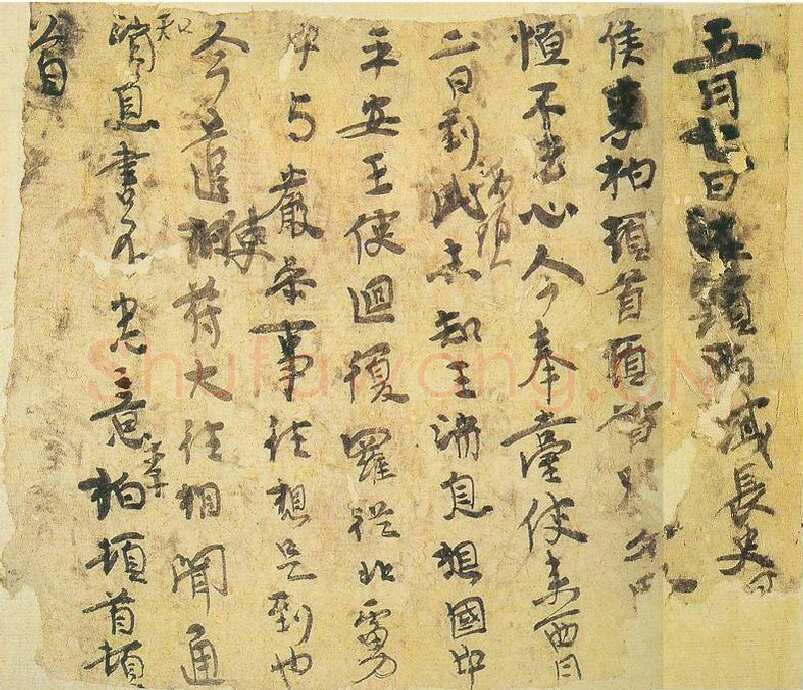 五月七日西域長史
侯李柏頓首頓首
恒不去心今奉臺使来西月
二日到此海頭未知王消息想國中
平安王使迴復羅從北虜
中与嚴參事往想是到也
今遣使苻大往相聞通
知消息書不悉意李柏頓首頓
首
Shufawang.CN